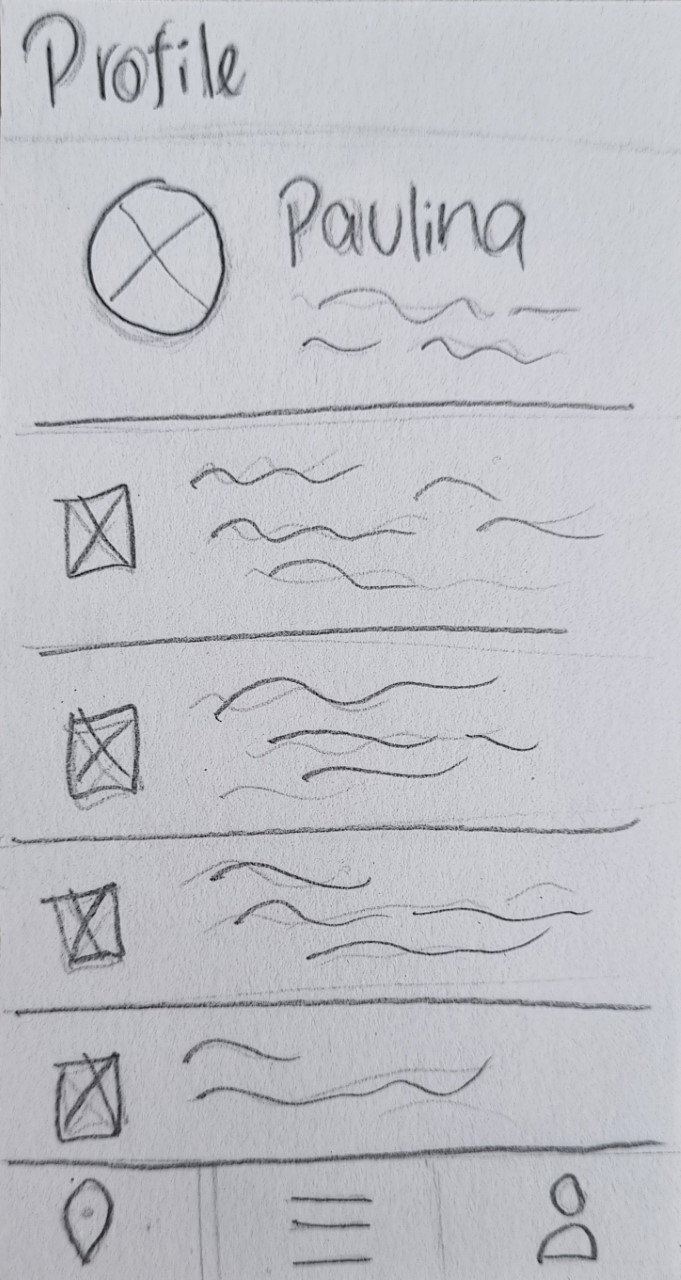 Profile
Paulina